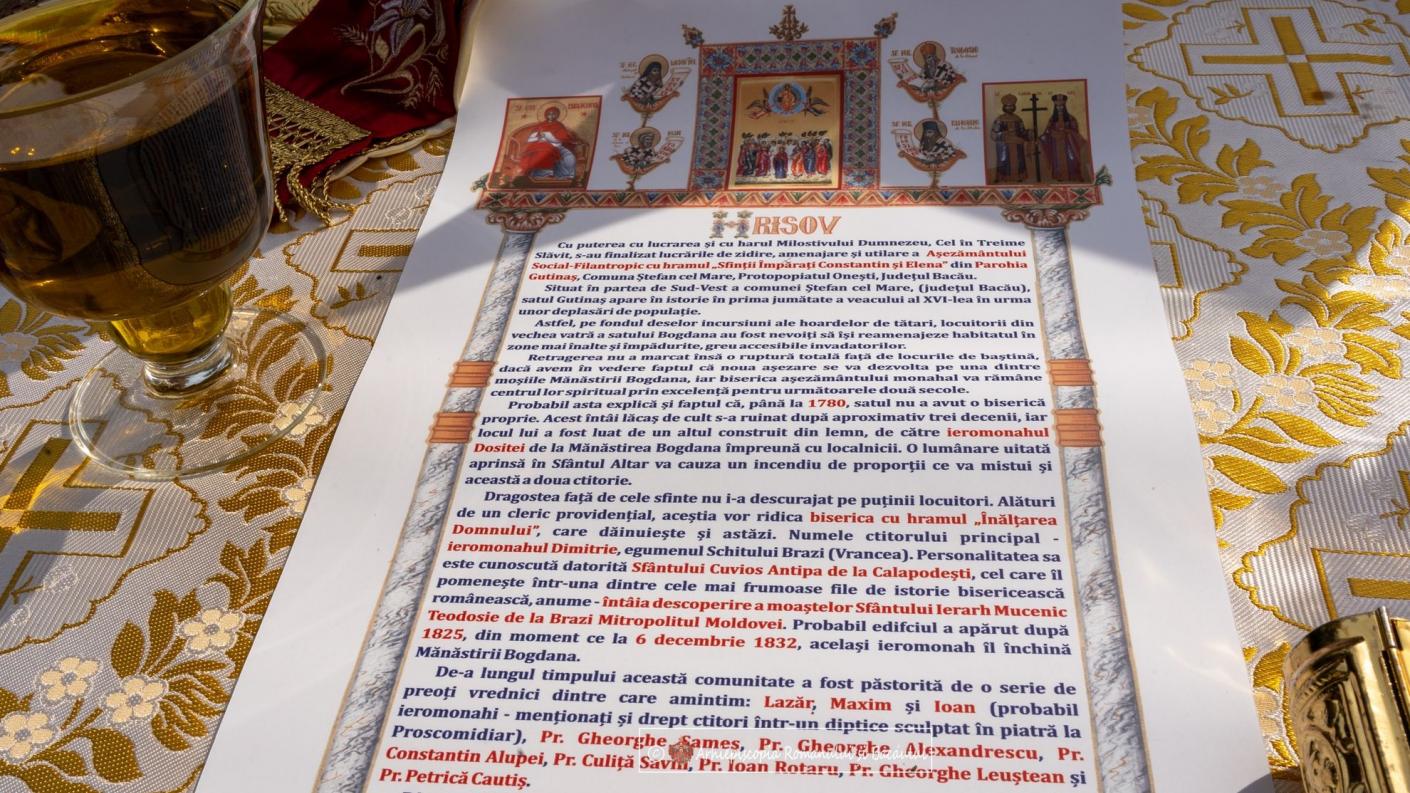 HRISOV
Cu puterea cu lucrarea și cu harul Milostivului Dumnezeu, Cel în Treime
Slăvit, s-au finalizat lucrările de zidire, amenajare și utilare a Așezământului
Social-Filantropic cu hramul „Sfinții Împărați Constantin și Elena” din Parohia
Gutinaș, Comuna Ștefan cel Mare, Protopopiatul Onești, Județul Bacău.
Situat în partea de Sud-Vest a comunei Ștefan cel Mare, (județul Bacău),
satul Gutinaș apare în istorie în prima jumătate a veacului al XVI-lea în urma
unor deplasări de populație.
Astfel, pe fondul deselor incursiuni ale hoardelor de tătari, locuitorii din
vechea vatră a satului Bogdana au fost nevoiți să își reamenajeze habitatul în
zone mai înalte și împădurite, greu accesibile invadatorilor.
Retragerea nu a marcat însă o ruptură totală față de locurile de baștină,
dacă avem în vedere faptul că noua așezare se va dezvolta pe una dintre
moșiile Mănăstirii Bogdana, iar biserica așezământului monahal va rămâne
centrul lor spiritual prin excelență pentru următoarele două secole.
Probabil asta explică și faptul că, până la 1780, satul nu a avut o biserică
proprie. Acest întâi lăcaș de cult s-a ruinat după aproximativ trei decenii, iar
locul lui a fost luat de un altul construit din lemn, de către ieromonahul
Dositei de la Mănăstirea Bogdana împreună cu localnicii. O lumânare uitată
aprinsă în Sfântul Altar va cauza un incendiu de proporții ce va mistui și
această a doua ctitorie.
Dragostea față de cele sfinte nu i-a descurajat pe puținii locuitori. Alături
de un cleric providențial, aceștia vor ridica biserica cu hramul „Înălțarea
Domnului”, care dăinuiește și astăzi. Numele ctitorului principal -
ieromonahul Dimitrie, egumenul Schitului Brazi (Vrancea). Personalitatea sa
este cunoscută datorită Sfântului Cuvios Antipa de la Calapodești, cel care îl
pomenește într-una dintre cele mai frumoase file de istorie bisericească
românească, anume - întâia descoperire a moaștelor Sfântului Ierarh Mucenic
Teodosie de la Brazi Mitropolitul Moldovei. Probabil edifciul a apărut după
1825, din moment ce la 6 decembrie 1832, același ieromonah îl închină
Mănăstirii Bogdana.
De-a lungul timpului această comunitate a fost păstorită de o serie de
preoți vrednici dintre care amintim: Lazăr, Maxim și Ioan (probabil
ieromonahi - menționați și drept ctitori într-un diptice sculptat în piatră la
Proscomidiar), Pr. Gheorghe Sames, Pr. Gheorghe Alexandrescu, Pr.
Constantin Alupei, Pr. Culiță Savin, Pr. Ioan Rotaru, Pr. Gheorghe Leuștean și
Pr. Petrică Cautiș.
© Arhiepiscopia Romanului și Bacăului